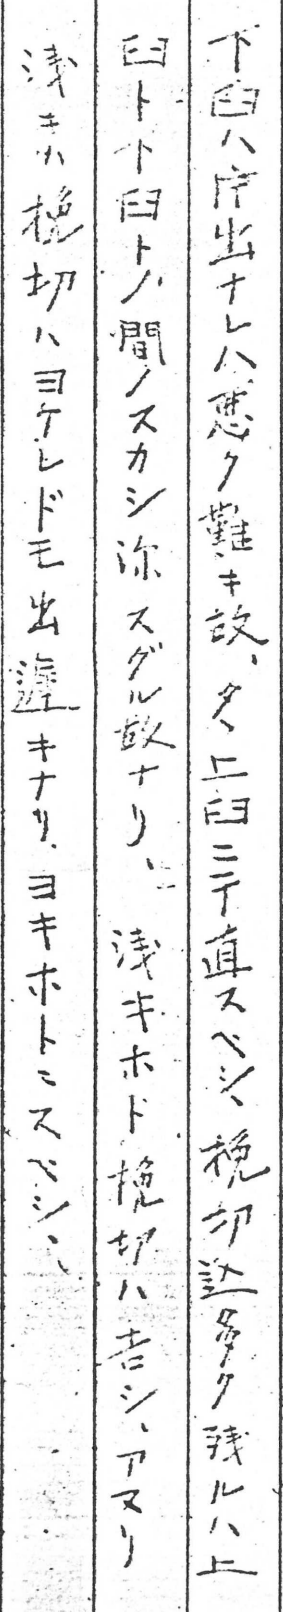 下臼ハ片出ナレハ悪ク難キ故、タヽ上臼ニテ直スベシ、挽切込多ク残ルハ上
臼ト下臼トノ間ノスカシ深スグル故ナリ、浅キホド挽切ハ吉シ、アマリ
浅キハ挽切ハヨケレドモ出遅キナリ、ヨキホトニスベシ、